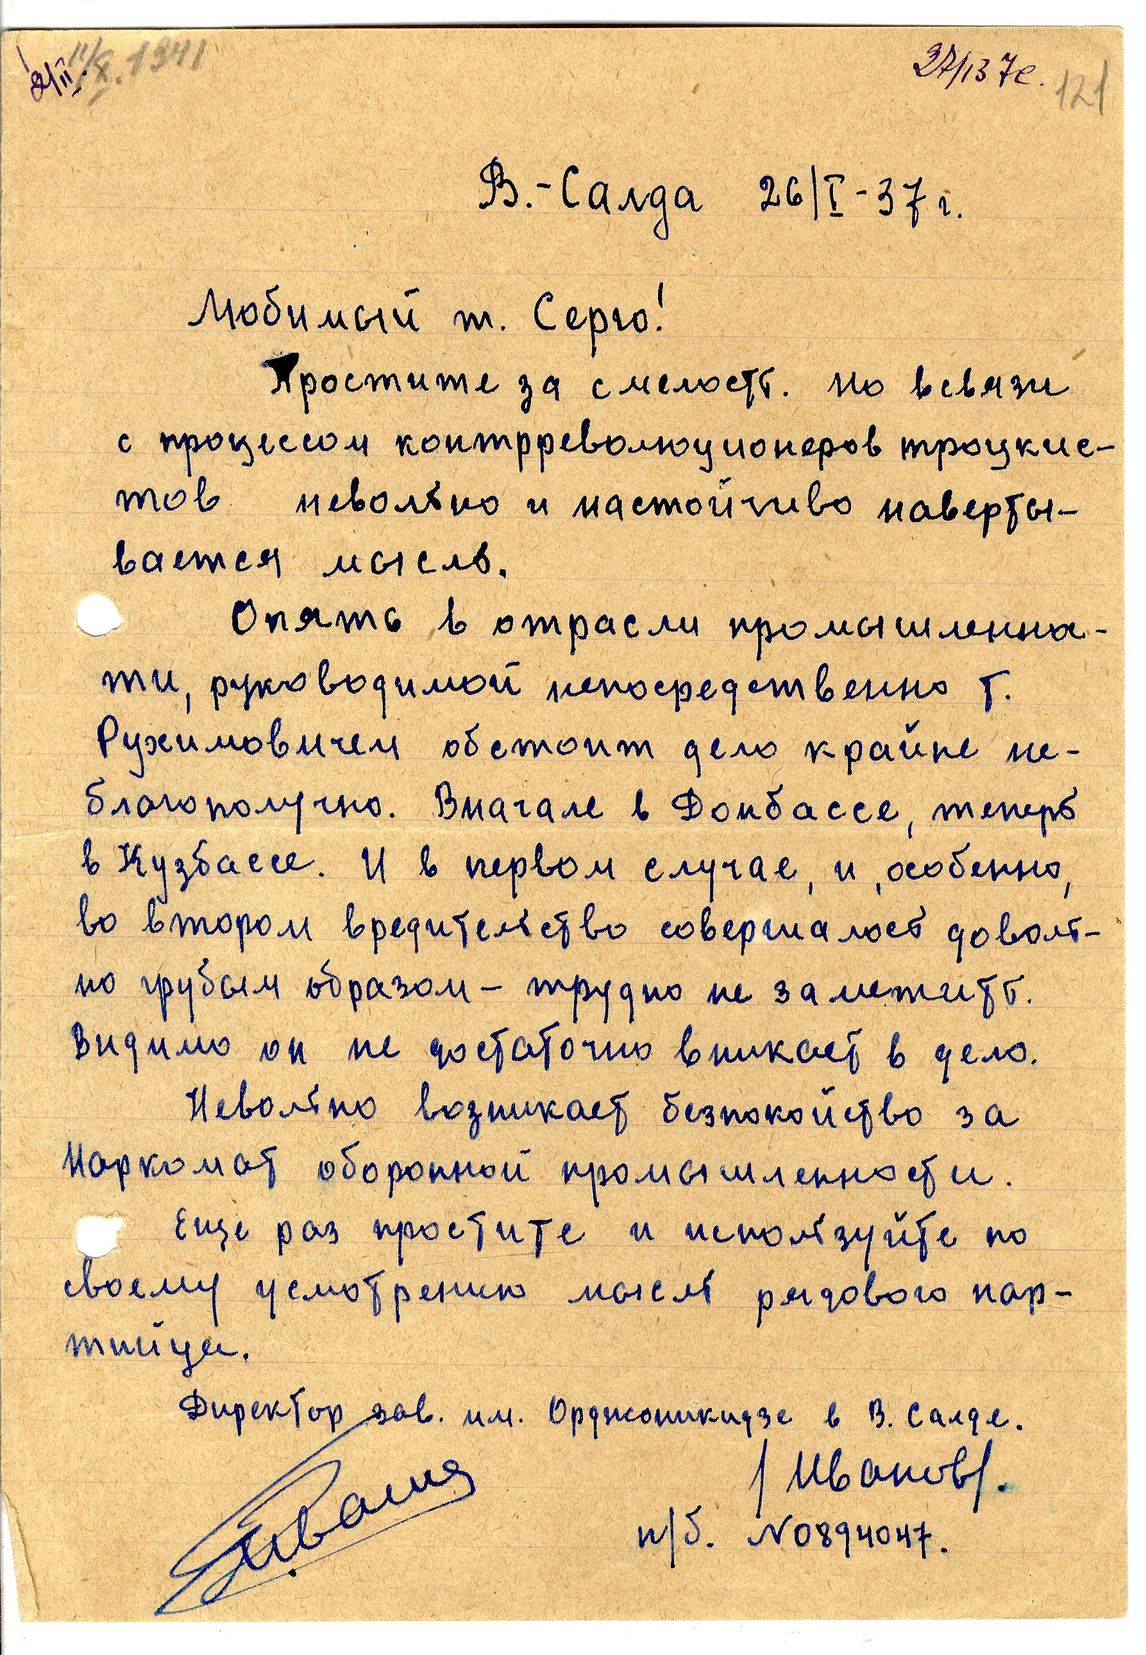 11/X.1941
27/13 7с. 121
В.-Салда 26/I-37 г.
Любимый т. Серго!
Простите за смелость. Но всвязи
с процессом контрреволюционеров троцкис-
тов невольно и настойчиво наверты-
вается мысль.
Опять в отрасли промышленнос-
ти, руководимой непосредственно т.
Рухимовичем обстоит дело крайне не-
благополучно. Вначале в Донбассе, теперь
в Кузбассе. И в первом случае, и, особенно,
во втором вредительство совершалось доволь-
но грубым образом – трудно не заметить.
Видимо он не достаточно вникает в дело.
Невольно возникает безпокойство за
Наркомат оборонной промышленности.
Еще раз простите и используйте по
своему усмотрению мысль рядового пар-
тийца.
Директор зав. им. Орджоникидзе в В. Салде.
/Иванов/.
п/б. №0894047.